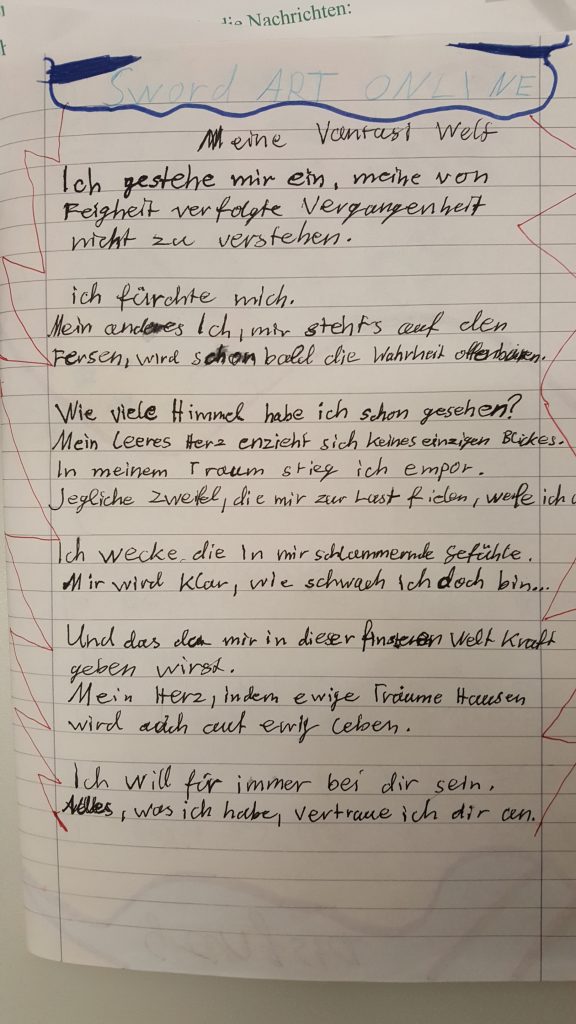 die Nachrichten:
Sword ART ONLINE
Meine Vantasi Welt
Ich gestehe mir ein, meine von
Feigheit verfolgte Vergangenheit
nicht zu verstehen.
ich fürchte mich.
Mein anderes Ich, mir stehts auf den
Fersen, wird schon bald die Wahrheit offenbaren.
Wie viele Himmel habe ich schon gesehen?
Mein leeres Herz enzieht sich keines einzigen Blickes.
In meinem Traum stieg ich empor.
Jegliche Zweifel, die mir zur Last fielen, werfe ich
Ich wecke die In mir schlammernde Gefühle.
Mir wird klar, wie schwach ich doch bin...
Und das du mir in dieser finsteren Welt Kraft
geben wirst.
Mein Herz, indem ewige Träume Hausen
wird auch auf ewig Leben.
Ich will für immer bei dir sein.
Alles, was ich habe, vertraue ich dir an.